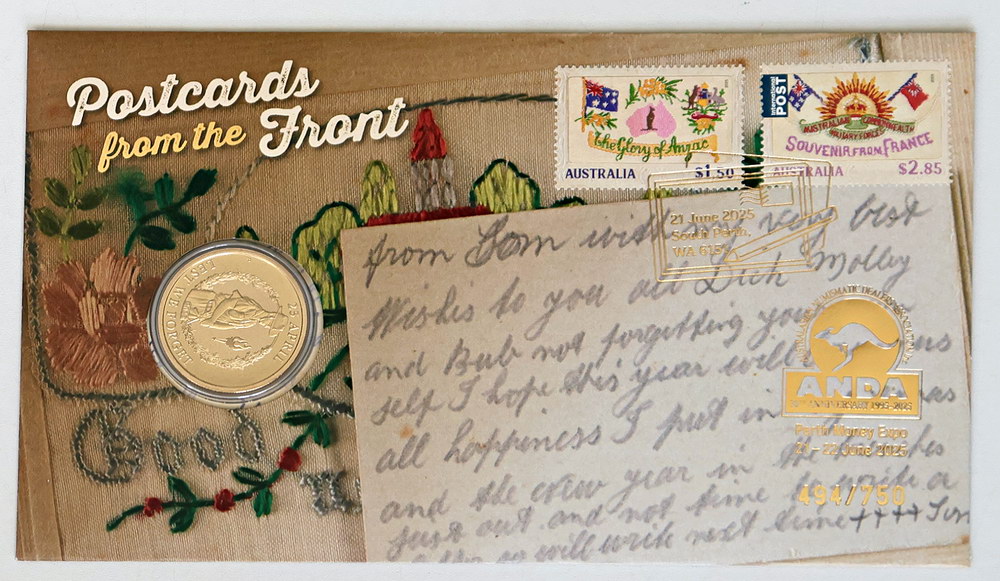 Postcards
from the Front
The Glory of Anzac
AUSTRALIA $1.50
International
POST
AUSTRALIAN COMMONWEALTH
MILITARY FORCES
SOUVENIR FROM FRANCE
AUSTRALIA $2.85
21 June 2025
South Perth,
WA 6151
25 APRIL
LEST WE FORGET
Good
from Tom with very best
Wishes to you all Dick Molley
and Bub not forgetting
self I hope this year will
all happiness I put in
and the New year in
just out and not time
so will write next time ++++
ANDA
ANNIVERSARY 1995-2025
Perth Money Expo
21 – 22 June 2025
494/750